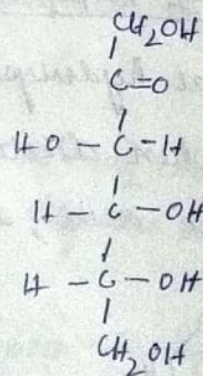 CH₂OH
C=O
HO – C – H
H – C – OH
H – C – OH
CH₂OH